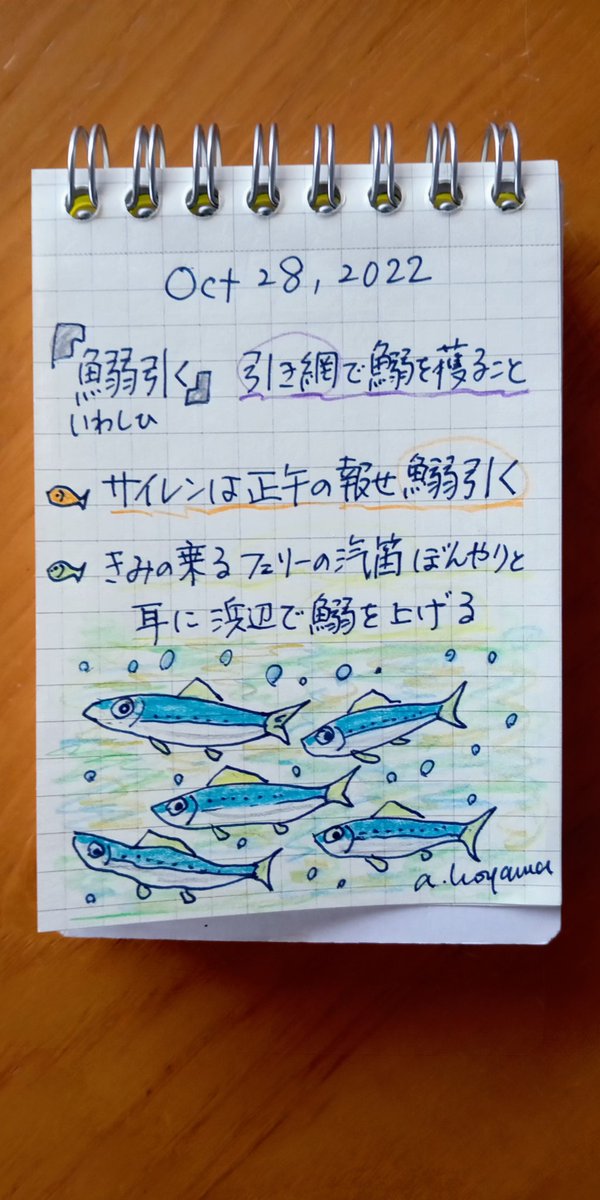 Oct 28, 2022
『鰯引く』 引き網で鰯を獲ること
いわしひ
サイレンは正午の報せ鰯引く
きみの乗るフェリーの汽笛ぼんやりと
耳に浜辺で鰯を上げる